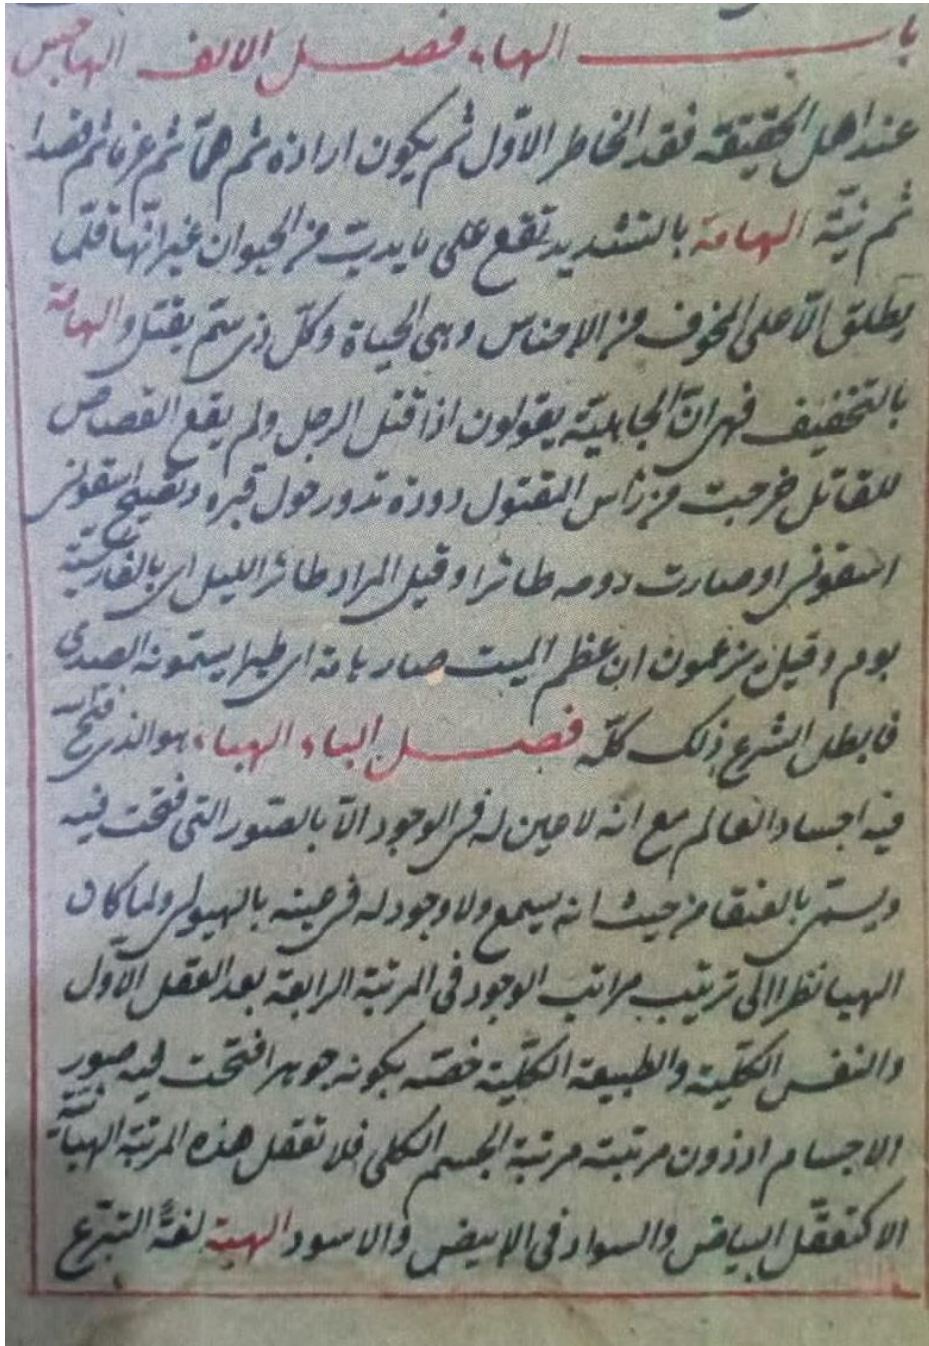 باب الهاء فصل الالف الهاجس
عند اهل الحقيقة فقد الخاطر الاوّل ثم يكون ارادة ثم همّا ثم عزما ثم قصدا
ثم نيّة الهامة بالتشديد تقع على ما يدبّ من الحيوان غير انّها قلّما
يطلق الّا على المخوف من الاحناس وهى الحياة وكلّ ذى سمّ يقتل والهامة
بالتخفيف فهى انّ الجاهليّة يقولون اذا قتل الرجل ولم يقع القصاص
للقاتل خرجت من رأس المقتول دودة تدور حول قبره وتصيح اسقونى
اسقونى او صارت دومه طائرا وقيل المراد طائر الليل اى بالفارسية
بوم وقيل يزعمون ان عظم الميت صار هامة اى طيرا يسمّونه الصدى
فابطل الشرع ذلك كلّه فصل الباء الهباء هو الذى فتح اللّه
فيه اجساد العالم مع انه لا عين له فى الوجود الّا بالصّور التى فتحت فيه
ويسمّى بالعنقا من حيث انه يسمع ولا وجود له فى عينه بالهيولى ولما كان
الهبا نظرا الى ترتيب مراتب الوجود فى المرتبة الرابعة بعد العقل الاوّل
والنفس الكلّية والطبيعة الكلّية خصّه بكونه جوهرا فتحت فيه صور
الاجسام اذ دون مرتبته مرتبة الجسم الكلى فلا تعقل هذه المرتبة الهبائيّة
الا كتعقّل البياض والسواد فى الابيض والاسود الهبة لغةً التبرّع